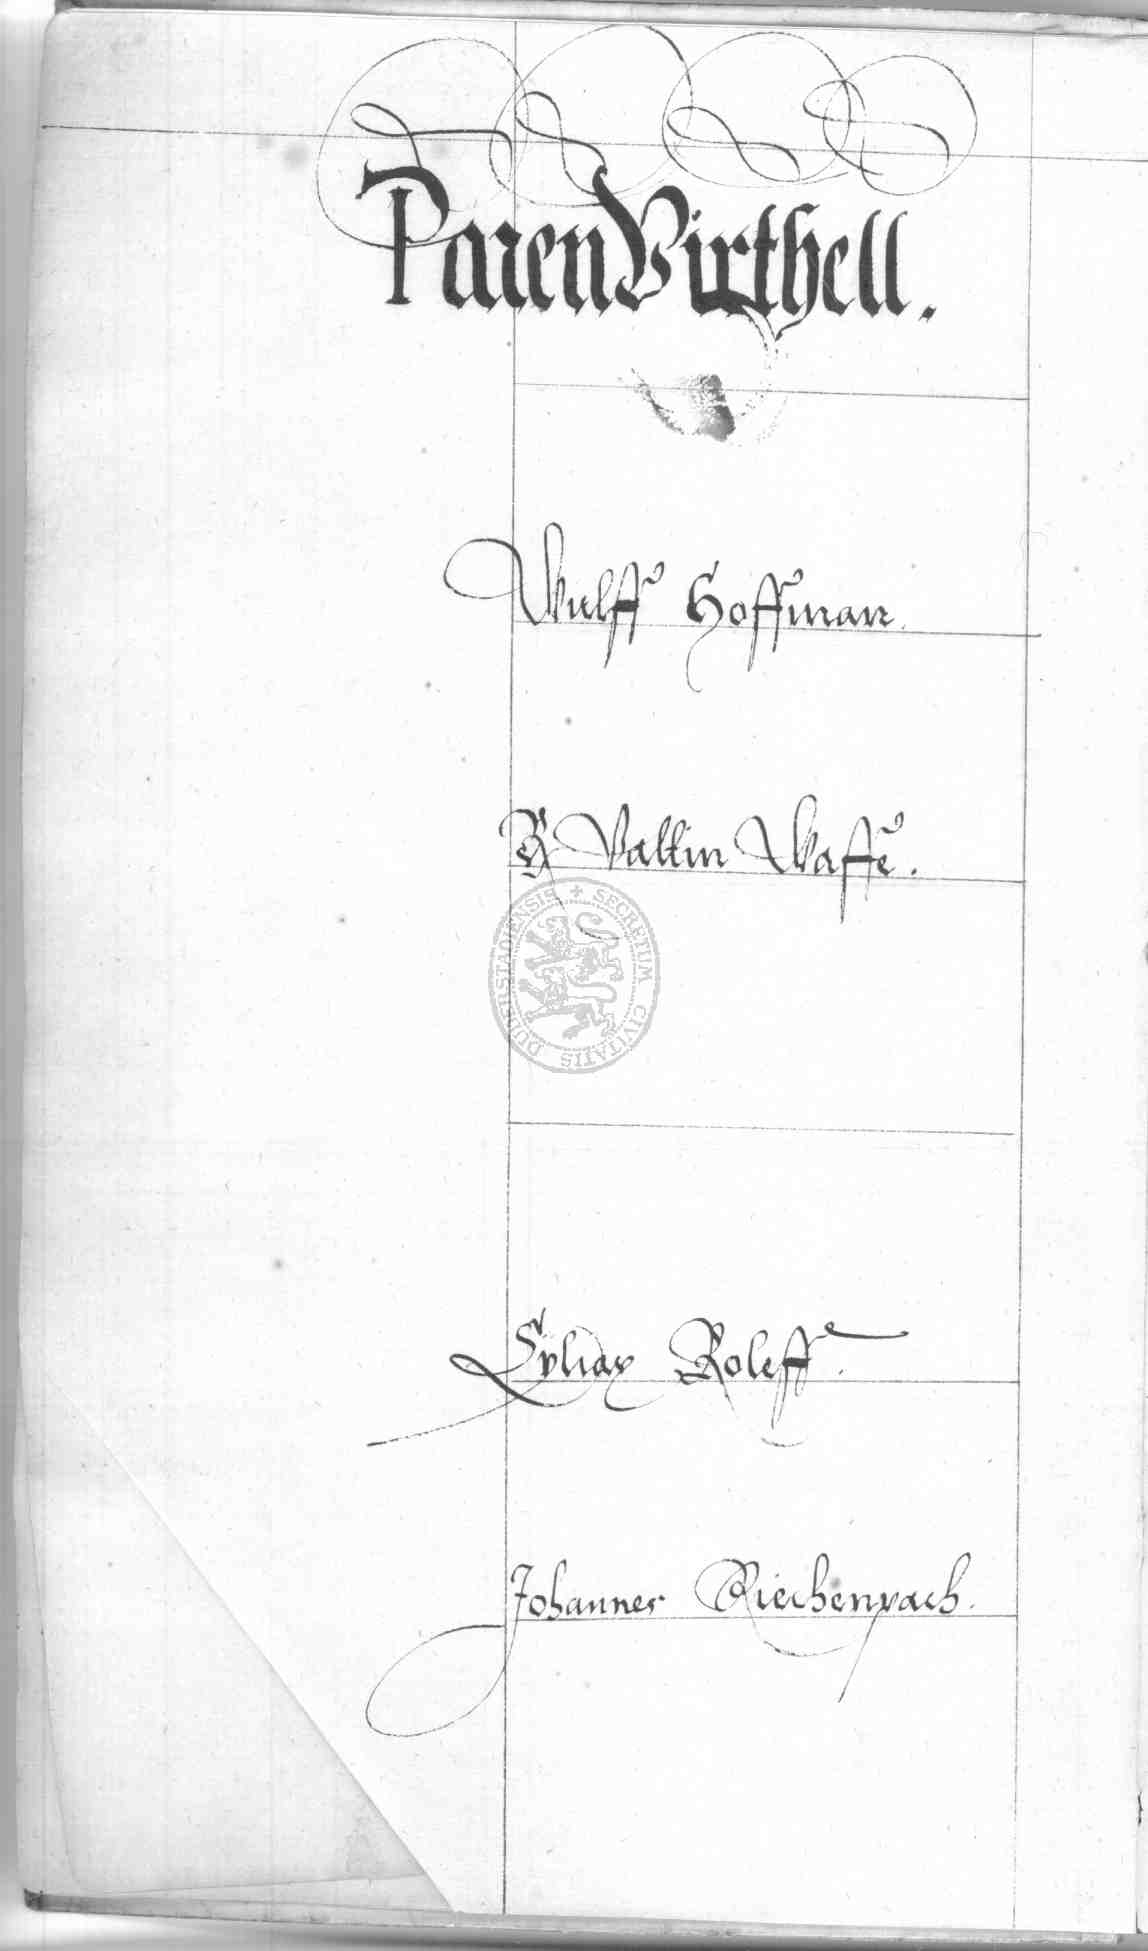 Paren Virthell.
Wulff Hoffman.
Valtin Waffe.
SECRETUM CIVITATIS DUDERSTADIENSIS
Roleff.
Johannes Riechenpach.